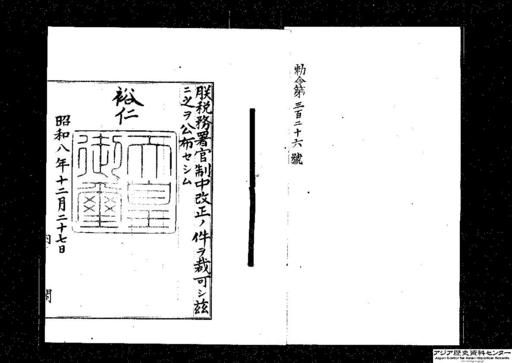 勅令第三百二十六號
朕税務署官制中改正ノ件ヲ裁可シ茲
ニ之ヲ公布セシム
裕仁
天皇御璽
昭和八年十二月二十七日
内閣
アジア歴史資料センター
Japan Center for Asian Historical Records